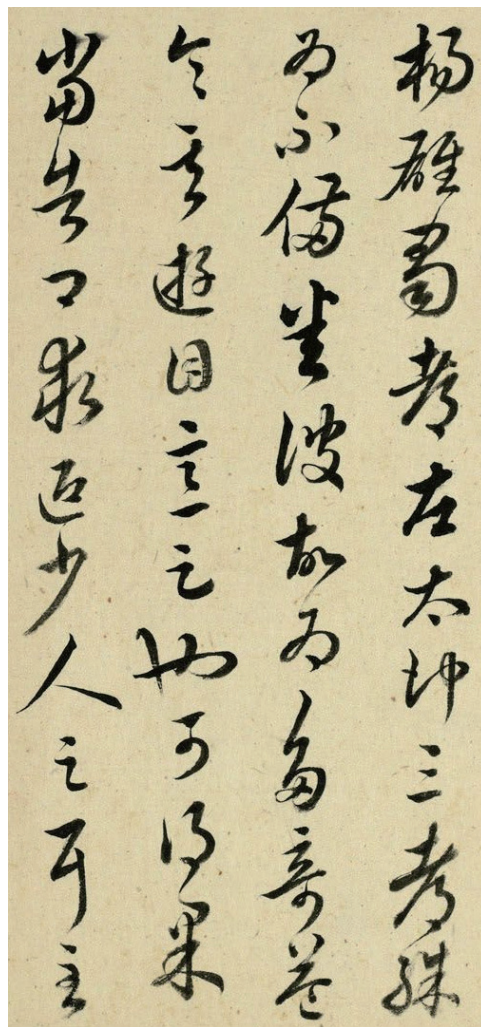 楊雄蜀都左太冲三都殊
為不備悉彼故為多奇益
令其遊目意足也可得果
當告卿求迎少人足耳至